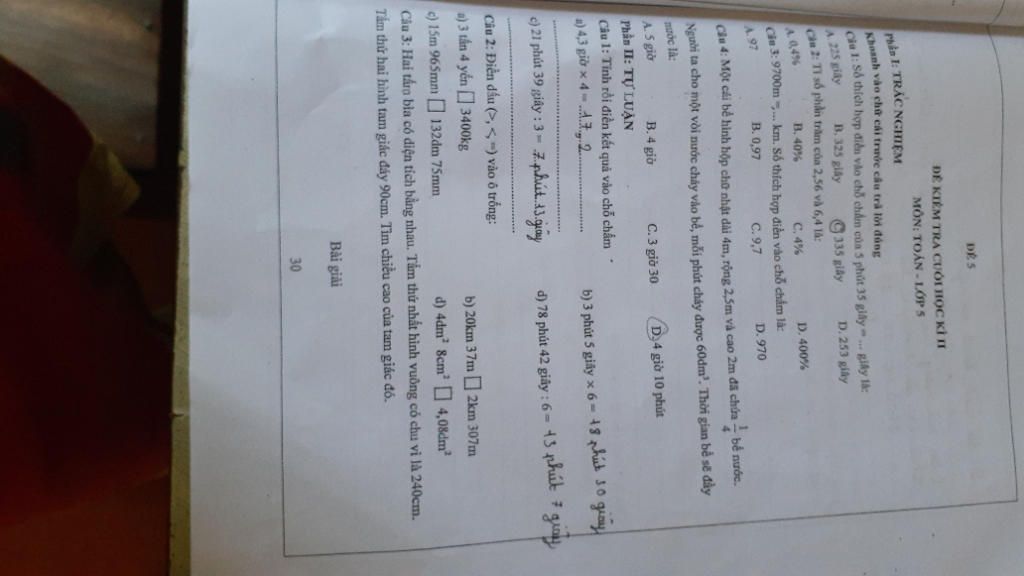 ĐỀ 5
ĐỀ KIỂM TRA CUỐI HỌC KÌ II
MÔN: TOÁN - LỚP 5
PHẦN I: TRẮC NGHIỆM
Khoanh vào chữ cái trước câu trả lời đúng
Câu 1: Số thích hợp điền vào chỗ chấm của 5 phút 35 giây = ... giây là:
A. 225 giây B. 325 giây C. 335 giây D. 253 giây
Câu 2: Tỉ số phần trăm của 2,56 và 6,4 là:
A. 0,4% B. 40% C. 4% D. 400%
Câu 3: 9700m = ... km. Số thích hợp điền vào chỗ chấm là:
A. 97 B. 0,97 C. 9,7 D. 970
Câu 4: Một cái bể hình hộp chữ nhật dài 4m, rộng 2,5m và cao 2m đã chứa 1/4 bể nước.
Người ta cho một vòi nước chảy vào bể, mỗi phút chảy được 60dm³. Thời gian bể sẽ đầy
nước là:
A. 5 giờ B. 4 giờ C. 3 giờ 30 D. 4 giờ 10 phút
Phần II: TỰ LUẬN
Câu 1: Tính rồi điền kết quả vào chỗ chấm
a) 4,3 giờ × 4 = 17,2 b) 3 phút 5 giây × 6 = 18 phút 30 giây
c) 21 phút 39 giây : 3 = 7 phút 13 giây d) 78 phút 42 giây : 6 = 13 phút 7 giây
Câu 2: Điền dấu (>, < =) vào ô trống:
a) 3 tấn 4 yến □ 3400kg b) 20km 37m □ 2km 307m
c) 15m 965mm □ 132dm 75mm d) 4dm² 8cm² □ 4,08dm²
Câu 3: Hai tấm bìa có diện tích bằng nhau. Tấm thứ nhất hình vuông có chu vi là 240cm.
Tấm thứ hai hình tam giác đáy 90cm. Tìm chiều cao của tam giác đó.
Bài giải
30